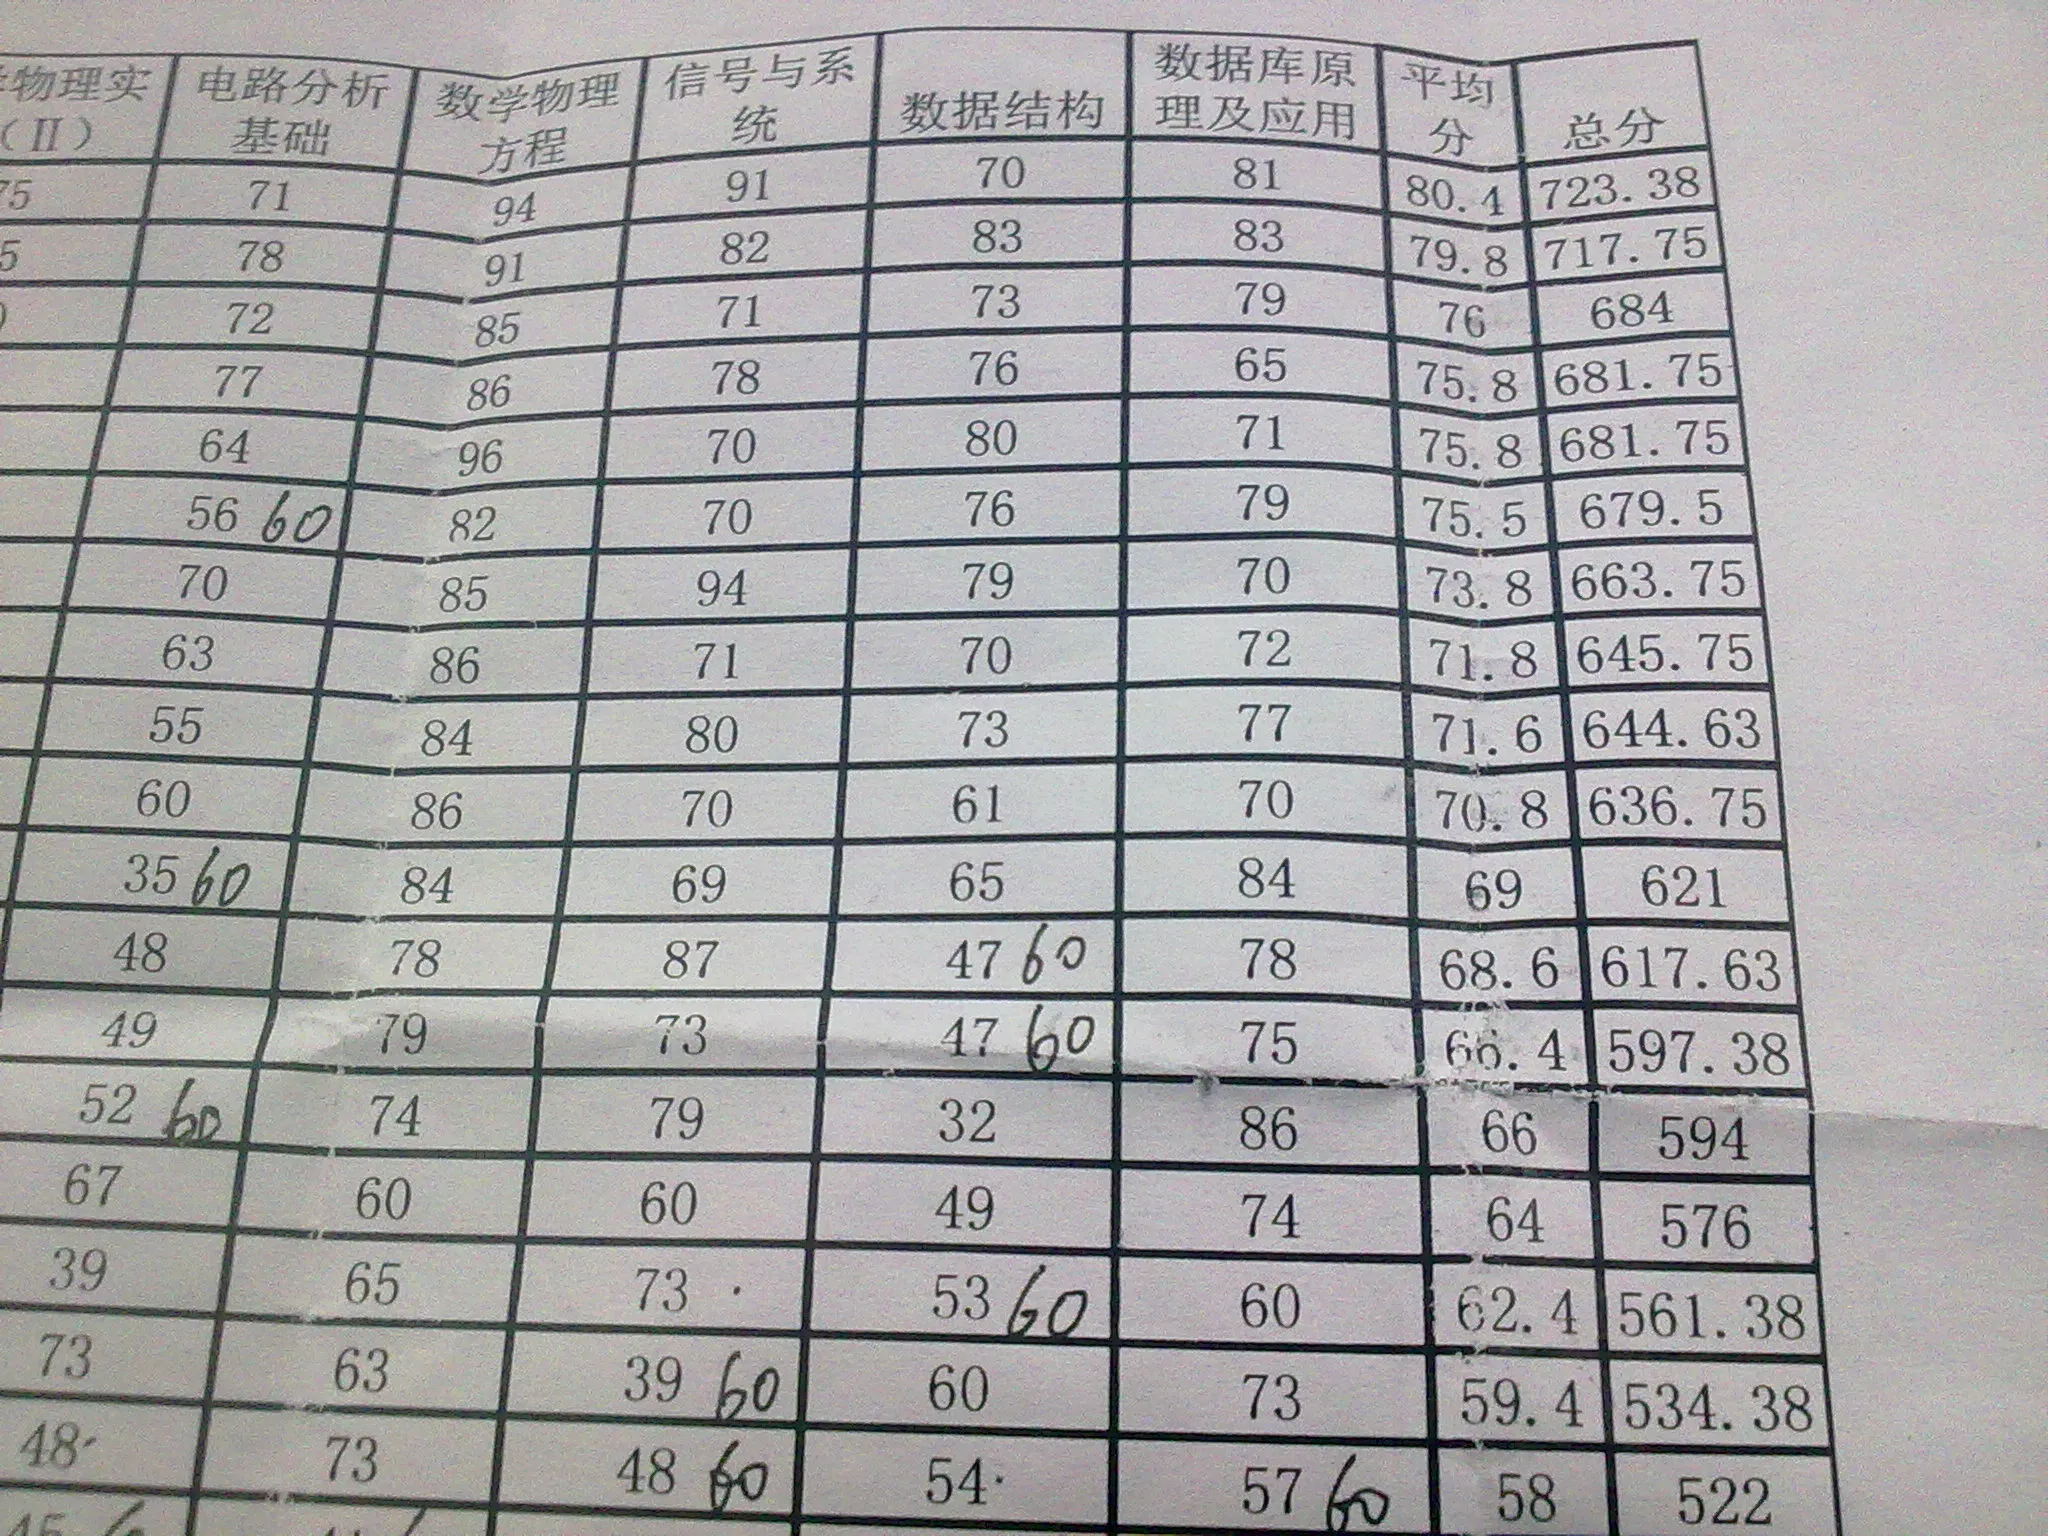 物理实（II） 电路分析基础 数学物理方程 信号与系统 数据结构 数据库原理及应用 平均分 总分
75 71 94 91 70 81 80.4 723.38
5 78 91 82 83 83 79.8 717.75
72 85 71 73 79 76 684
77 86 78 76 65 75.8 681.75
64 96 70 80 71 75.8 681.75
56 60 82 70 76 79 75.5 679.5
70 85 94 79 70 73.8 663.75
63 86 71 70 72 71.8 645.75
55 84 80 73 77 71.6 644.63
60 86 70 61 70 70.8 636.75
35 60 84 69 65 84 69 621
48 78 87 47 60 78 68.6 617.63
49 79 73 47 60 75 66.4 597.38
52 60 74 79 32 86 66 594
67 60 60 49 74 64 576
39 65 73 53 60 60 62.4 561.38
73 63 39 60 60 73 59.4 534.38
48 73 48 60 54 57 60 58 522